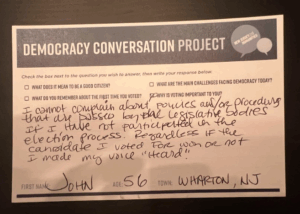 DEMOCRACY CONVERSATION PROJECT
Check the box next to the question you wish to answer, then write your response below.
☐ WHAT DOES IT MEAN TO BE A GOOD CITIZEN?
☐ WHAT ARE THE MAIN CHALLENGES FACING DEMOCRACY TODAY?
☐ WHAT DO YOU REMEMBER ABOUT THE FIRST TIME YOU VOTED?
WHY IS VOTING IMPORTANT TO YOU?
I cannot complain about policies and/or procedures
that are passed by the Legislative bodies
If I have not participated in the
election process. Regardless if the
candidate I voted for won or not
I made my voice "Heard".
FIRST NAME JOHN AGE 56 TOWN WHARTON, NJ